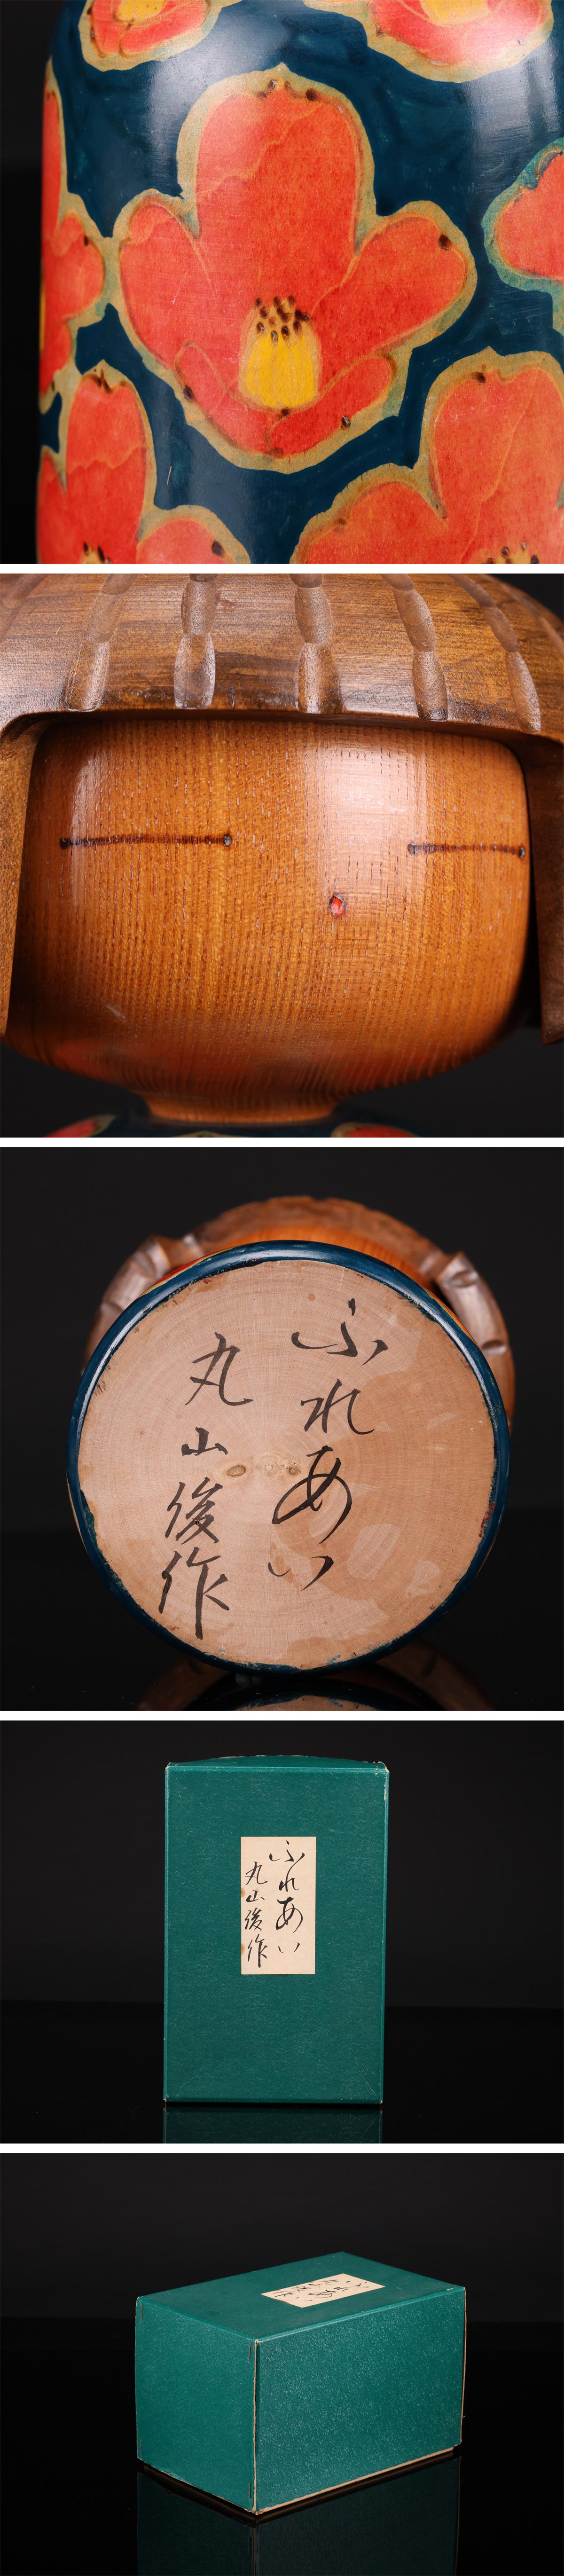 ふれあい
丸山俊作
ふれあい
丸山俊作